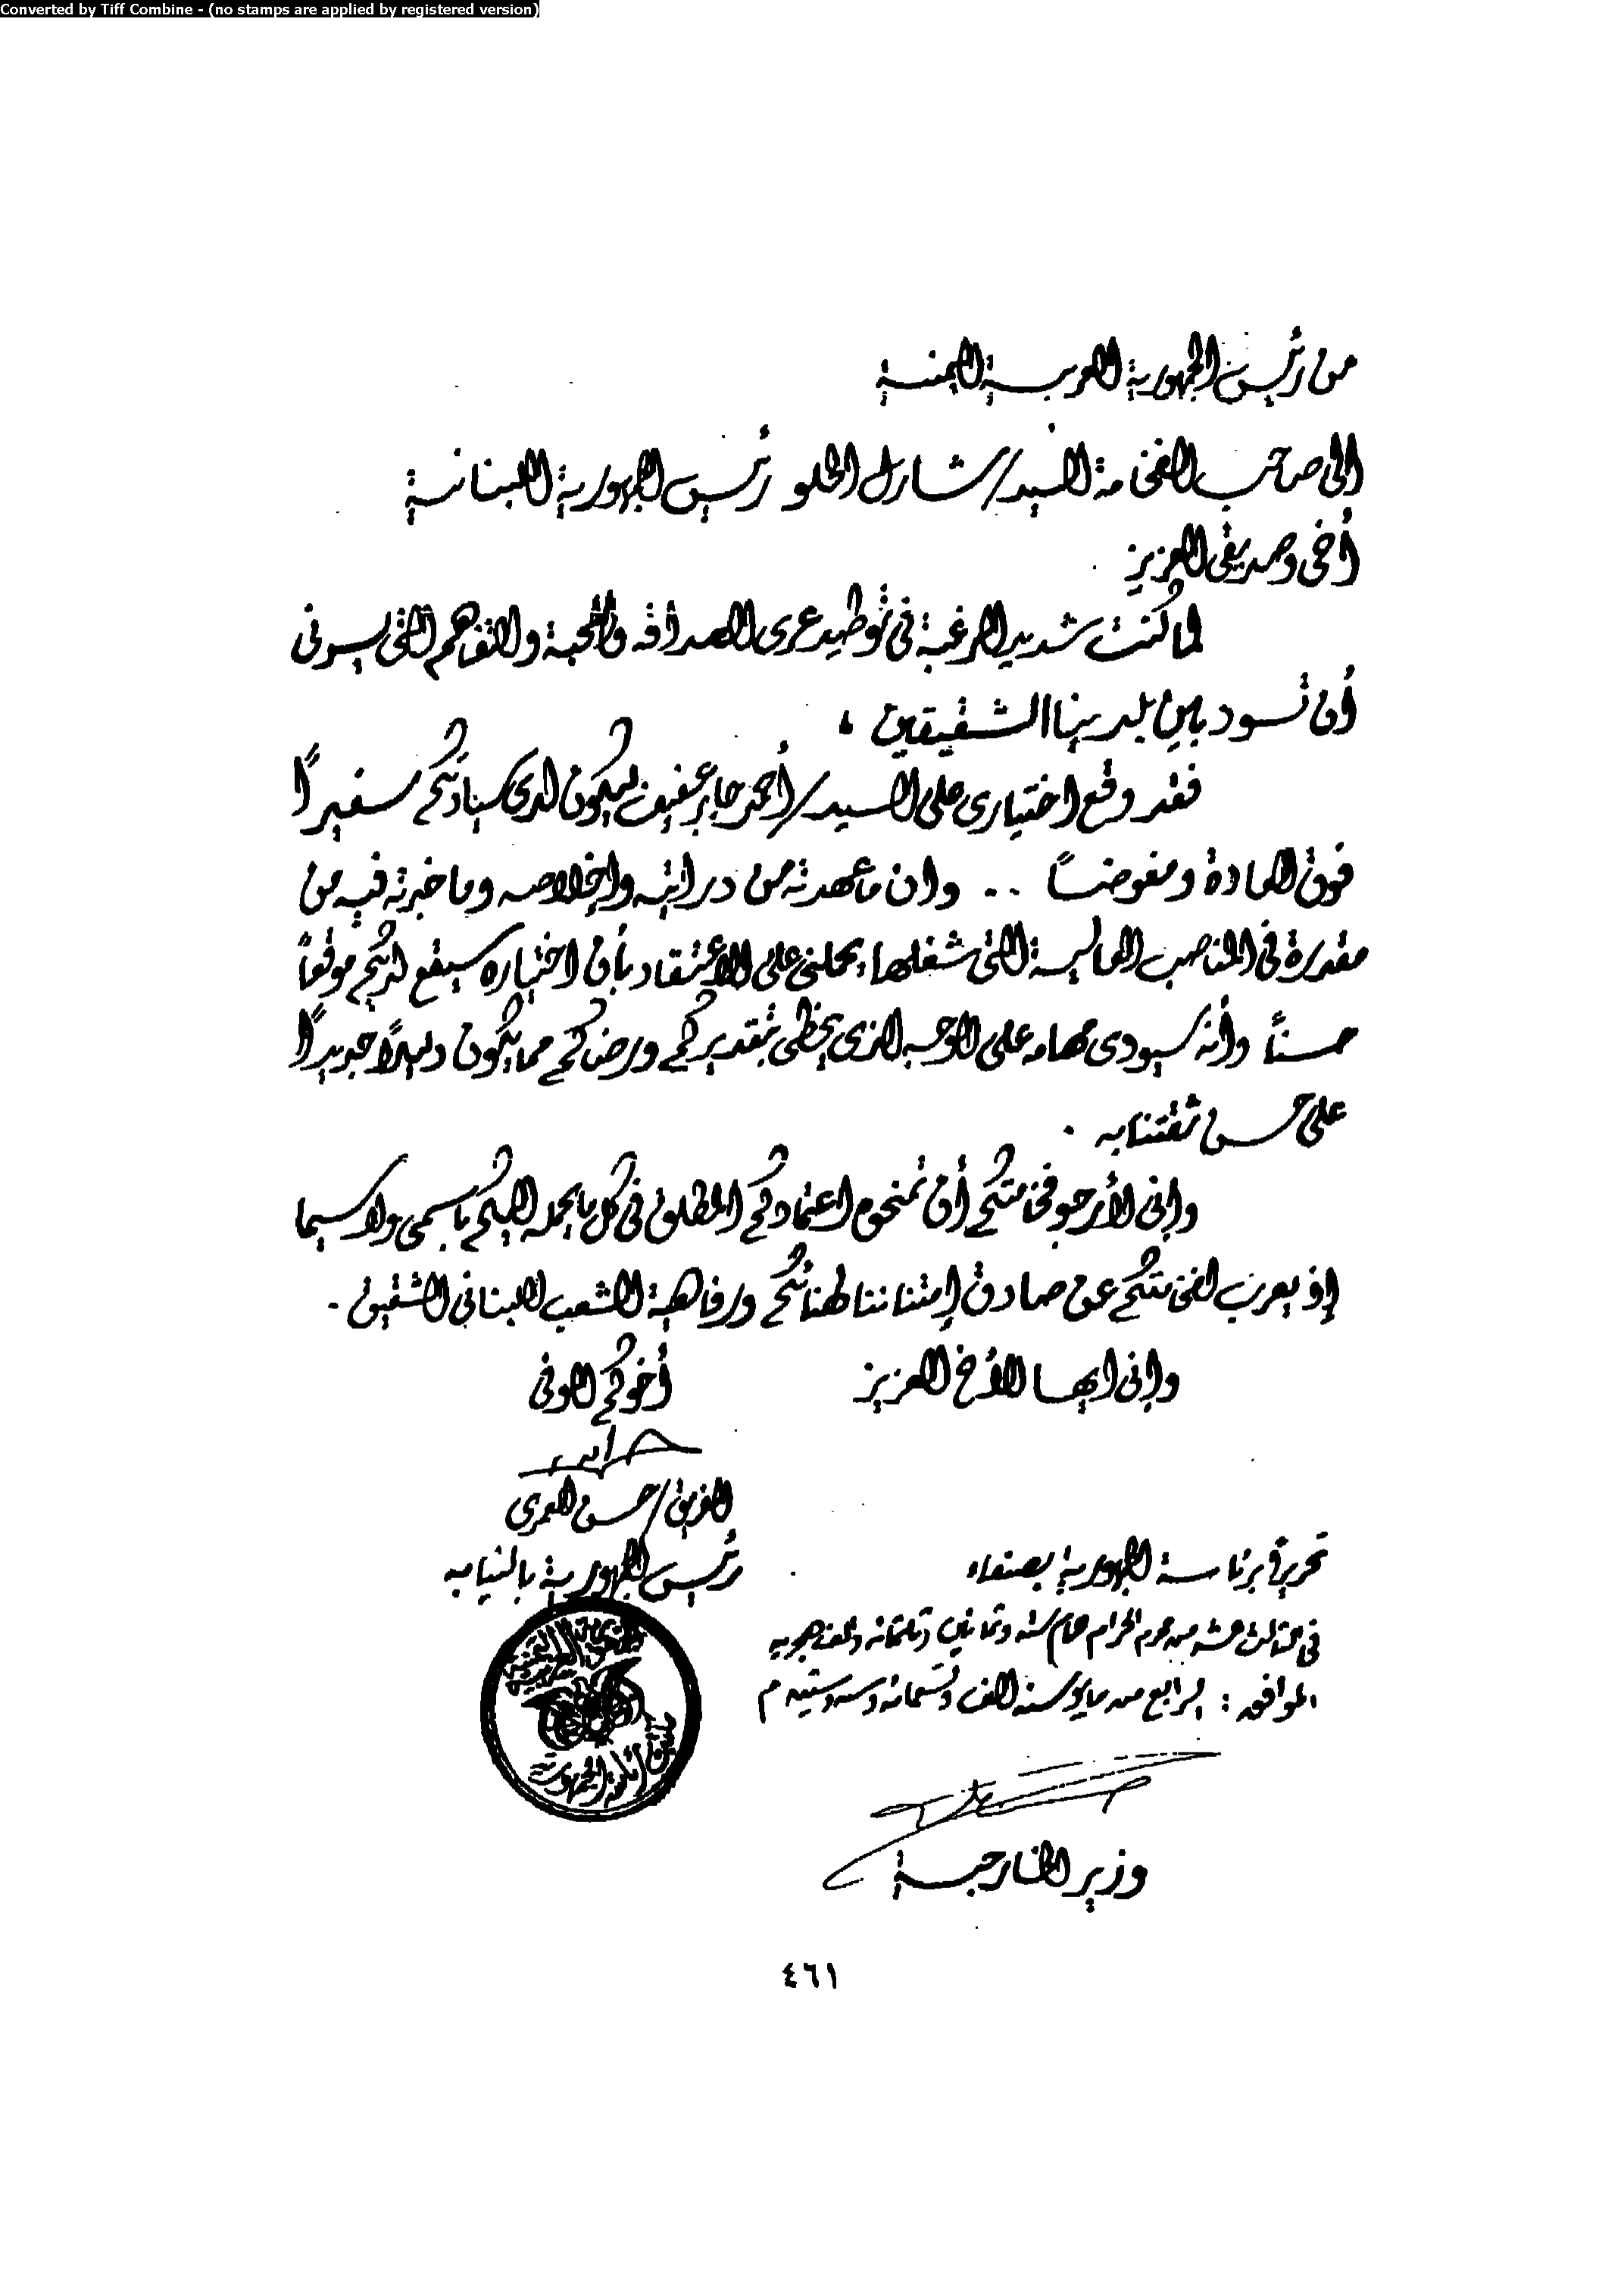 Converted by Tiff Combine - (no stamps are applied by registered version)
من رئيس الجمهورية العربية اليمنية
الى صاحب الفخامة السيد/ شارل الحلو رئيس الجمهورية اللبنانية
أخى وصديقى العزيز
لما كنت شديد الرغبة فى توطيد عرى الصداقة والمحبة والتفاهم التى يسرنى
أن تسود بين بلدينا الشقيقين ،
فقد وقع اختيارى على السيد/ أحمد جابر عفيف ليكون لدى سيادتكم سفيراً
فوق العادة ومفوضاً .. وان ما عهدته من درايته وإخلاصه وما خبرته فيه من
مقدرة فى المناصب العالية التى شغلها، يحملنى على الاعتقاد بأن اختياره سيقع لديكم موقعاً
حسناً وأنه سيودى مهامه على الوجه الذى يحظى بتقديركم ورضاكم مما يكون دليلاً جديداً
على حسن ثقتنا به .
وإنى لأرجو فخامتكم أن تمنحوه اعتمادكم المطلق فى كل ما يحمله اليكم باسمى ولا سيما
إذ يعرب لفخامتكم عن صادق إمتناننا لهنائكم ورفاهية الشعب اللبنانى الشقيق .
وإنى ايها الأخ العزيز أخوكم الوفى
الفريق/ حسن العمرى
رئيس الجمهورية بالنيابه
تحريراً برئاسة الجمهورية بصنعاء
فى الثالث عشر من محرم الحرام عام سته وثمانين وثلثمائه والف هجريه
الموافق : الرابع من مايو سنة الف وتسعمائه وسته وستين م
وزير الخارجية
٤٦١